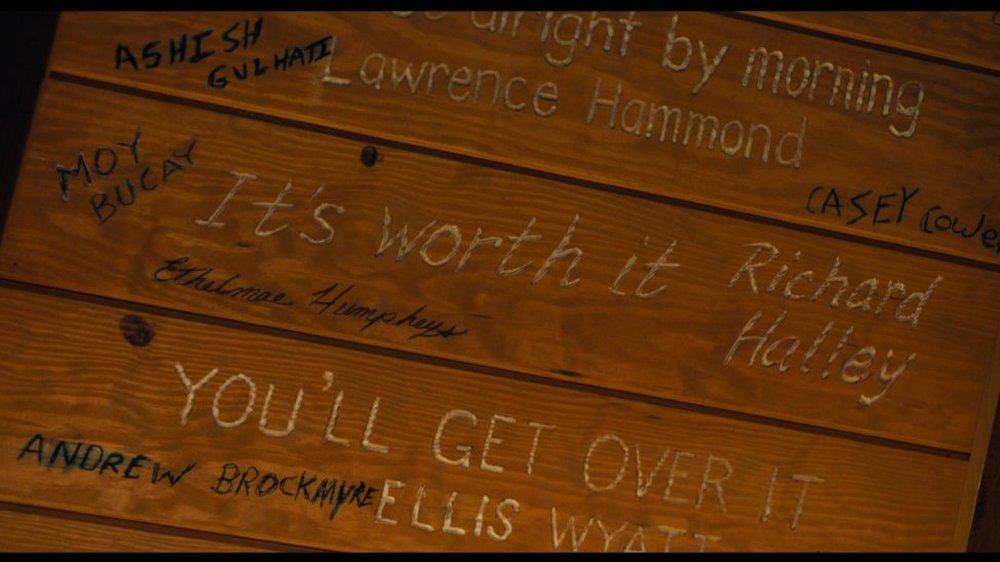 alright by morning
Lawrence Hammond
ASHISH
GULHATI
MOY
BUCAY
CASEY
It's worth it
Richard
Halley
Ethelmae Humphreys
YOU'LL GET OVER IT
ELLIS WYATT
ANDREW BROCKMYRE